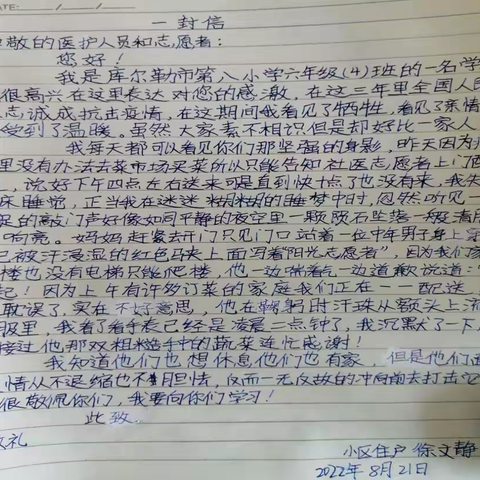 DATE: / /
一封信
敬的医护人员和志愿者：
您好！
我是库尔勒市第八小学六年级(4)班的一名学
很高兴在这里表达对您的感激，在这三年里全国人民
志诚成抗击疫情，在这期间我看见了牺牲，看见了亲情
受到了温暖。虽然大家素不相识但是却好比一家人
我每天都可以看见你们那坚强的身影，昨天因为
里没有办法去菜市场买菜所以只能告知社医志愿者上门
，说好下午四点左右送来可是直到快十点了也没有来，我
床睡觉，正当我在迷迷糊糊的睡梦中时，忽然听见一
促的敲门声好像如同平静的夜空里一颗陨石坠落一般
响亮。妈妈赶紧去开门只见门口站着一位中年男子身上
已被汗浸湿的红色马夹上面写着“阳光志愿者”，因为我们
楼也没有电梯只能爬楼，他一边喘着一边道歉说道：“
起！因为上午有许多订菜的家庭我们正在一一配送
耽误了，实在不好意思，他在鞠躬时汗珠从额头上流
眼里，我看了看手表已经是凌晨二点钟了，我沉默了一下
接过他那双粗糙手中的蔬菜连忙感谢！
我知道他们也想休息他们也有家，但是他们
情从不退缩也不胆怯，反而一无反故的冲向前去打击
很敬佩你们，我要向你们学习！
此致.
敬礼
小区住户 徐文静
2022年8月21日